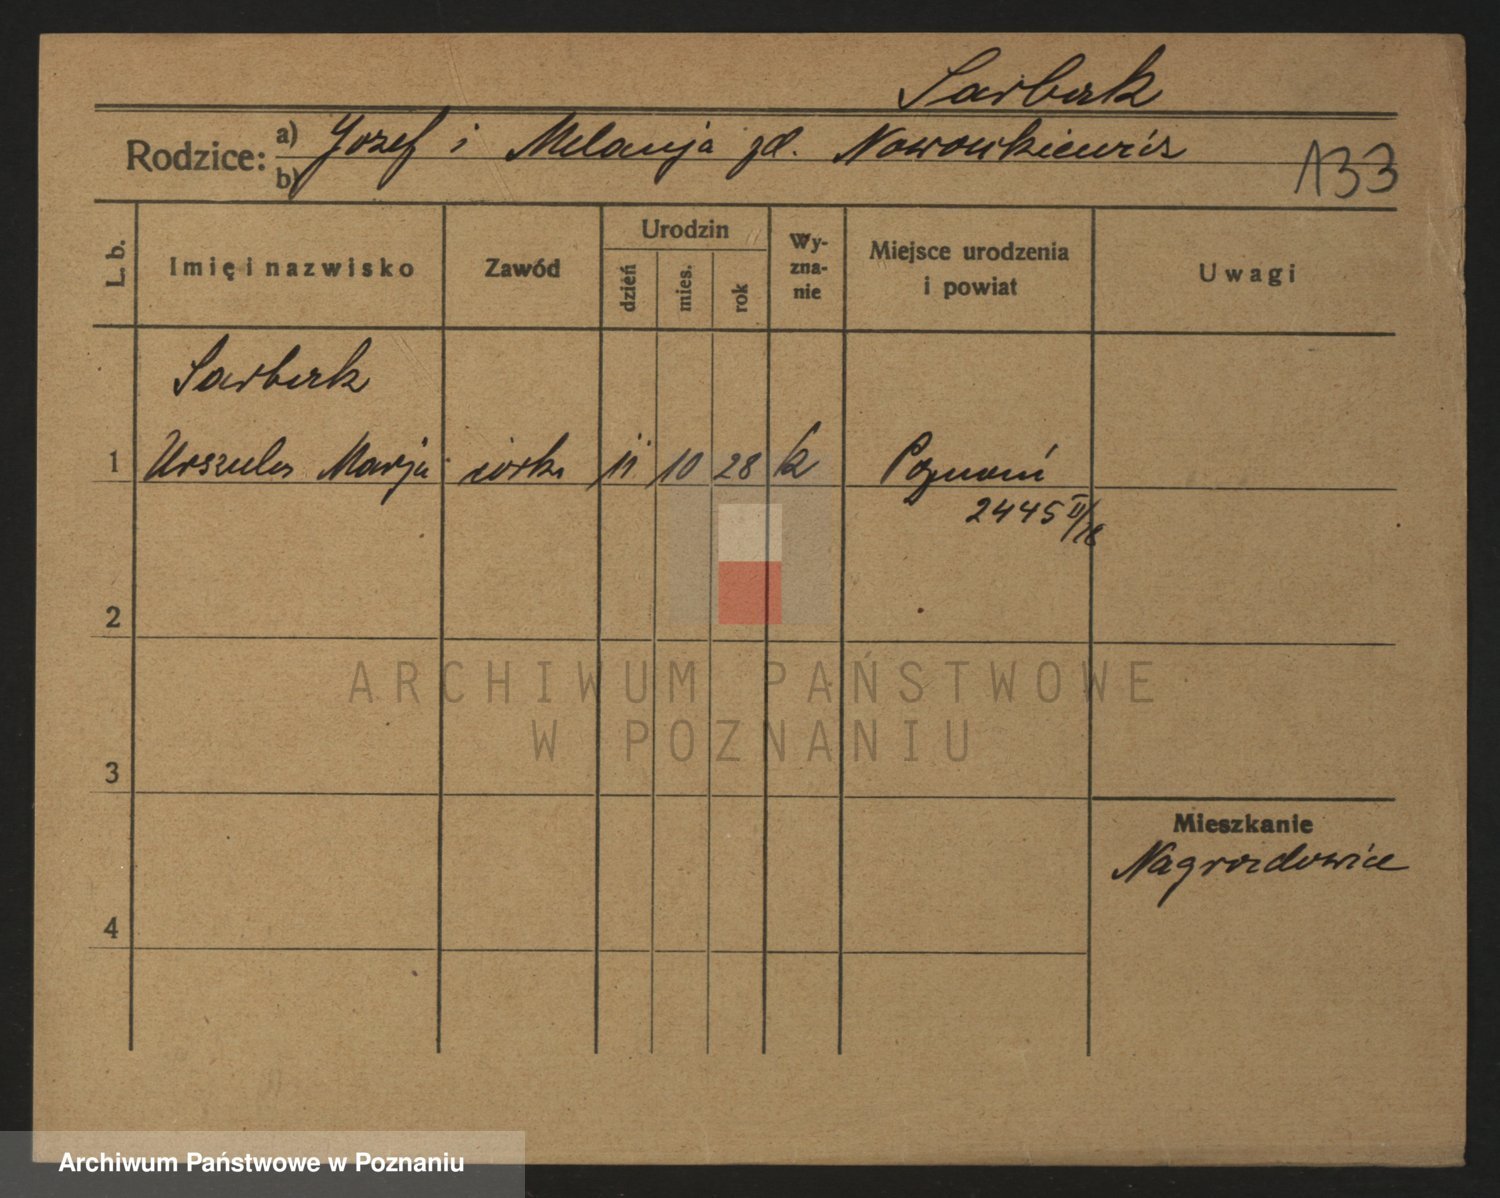 Sarbak
Rodzice: a) Jozef i Melanja zd.
b)
133
L. b.
Imię i nazwisko
Zawód
Urodzin
dzień
mies.
rok
Wy-
zna-
nie
Miejsce urodzenia
i powiat
Uwagi
Sarbak
1 Urszula Marja córka 11 10 28 k Poznań
2445 II/18
2
3
4
Mieszkanie
ARCHIWUM PAŃSTWOWE
W POZNANIU
Archiwum Państwowe w Poznaniu